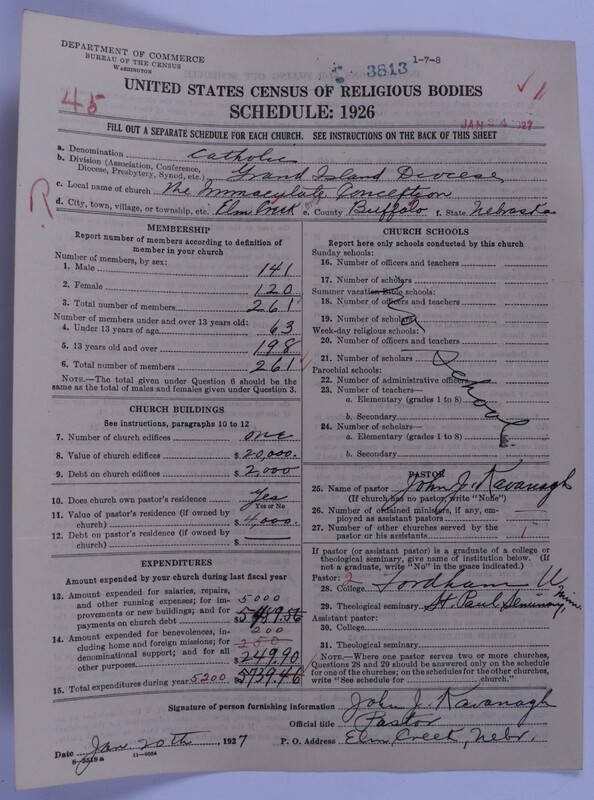 DEPARTMENT OF COMMERCE
BUREAU OF THE CENSUS
WASHINGTON
1-7-8
3813
UNITED STATES CENSUS OF RELIGIOUS BODIES
45
SCHEDULE: 1926
JAN 24 1927
FILL OUT A SEPARATE SCHEDULE FOR EACH CHURCH. SEE INSTRUCTIONS ON THE BACK OF THIS SHEET
a. Denomination Catholic
b. Division (Association, Conference, Diocese, Presbytery, Synod, etc.) Grand Island Diocese
c. Local name of church The Immaculate Conception
R
d. City, town, village, or township, etc. Elm Creek e. County Buffalo f. State Nebraska
MEMBERSHIP
Report number of members according to definition of
member in your church
Number of members, by sex:
1. Male 141
2. Female 120
3. Total number of members 261
Number of members under and over 13 years old:
4. Under 13 years of age 63
5. 13 years old and over 198
6. Total number of members 261
NOTE.—The total given under Question 6 should be
same as the total of males and females given under Question 3.
CHURCH BUILDINGS
See instructions, paragraphs 10 to 12
7. Number of church edifices one
8. Value of church edifices $ 20,000.
9. Debt on church edifices $ 2,000
10. Does church own pastor's residence Yes
Yes or No
11. Value of pastor's residence (if owned by
church) $ 4,000.
12. Debt on pastor's residence (if owned by
church) $
EXPENDITURES
Amount expended by your church during last fiscal year
13. Amount expended for salaries, repairs,
and other running expenses; for im-
provements or new buildings; and for
payments on church debt 5000
14. Amount expended for benevolences, in-
cluding home and foreign missions; for
denominational support; and for all
other purposes 200
250
$ 249.90
15. Total expenditures during year 5200 $ 5739.46
CHURCH SCHOOLS
Report here only schools conducted by this church
Sunday schools:
16. Number of officers and teachers
17. Number of scholars
Summer vacation Bible schools:
18. Number of officers and teachers
19. Number of scholars
Week-day religious schools:
20. Number of officers and teachers
21. Number of scholars
Parochial schools:
22. Number of administrative officers
23. Number of teachers—
a. Elementary (grades 1 to 8)
b. Secondary
24. Number of scholars—
a. Elementary (grades 1 to 8)
b. Secondary
No School.
PASTOR
25. Name of pastor John J. Kavanagh
(If church has no pastor, write "None")
26. Number of ordained ministers, if any, em-
ployed as assistant pastors
27. Number of other churches served by the
pastor or his assistants 1
If pastor (or assistant pastor) is a graduate of a college or
theological seminary, give name of institution below. (If
not a graduate, write "No" in the space indicated.)
Pastor: 2
28. College Fordham U
29. Theological seminary St. Paul Seminary, Minn.
Assistant pastor:
30. College
31. Theological seminary
NOTE.—Where one pastor serves two or more churches,
Questions 28 and 29 should be answered only on the schedule
for one of the churches; on the schedules for the other churches,
write "See schedule for church."
Signature of person furnishing information John J. Kavanagh
Official title Pastor
Date Jan. 20th, 1927 P. O. Address Elm Creek, Nebr.
11-9034